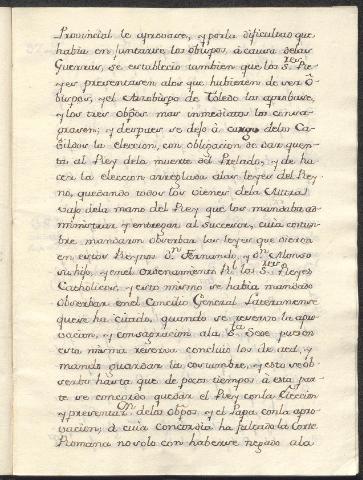 Provincial le aprovase, y por la dificultad que
havia en juntarse los obispos, á causa de las
Guerras, se estableció tambien que los S.res Re-
yes presentasen alos que hubieren de ser Ô-
bispos, y el Arzobispo de Toledo los aprobase,
y los tres obpos mas inmediatos los consa-
grasen; y despues se dejo â cargo delos Ca-
bildos la eleccion, con obligacion de dar quen-
ta al Rey dela muerte del Prelado, y de ha-
cer la eleccion arreglada alas leyes del Rey-
no, quedando todos los vienes dela Mitra
vajo dela mano del Rey que los mandaba ad-
ministrar y entregar al succesor, cuia costum-
bre mandaron observar las leyes que dieron
en estos Reynos D.n Fernando, y D.n Alonso
su hijo, y en el ordenamiento Rl los S.res Reyes
Catholicos, y esto mismo se habia mandado
observar en el Concilio General Lateranense
que se ha citado, quando se reservo la apro-
vacion, y consagracion ala S.ta Sede pues en
esta misma reserva concluió los de aca, y
mandó guardar la costumbre, y esto se ob-
serbó hasta que de pocos tiempos â esta par-
te se concordó quedar el Rey con la Eleccion
y presentac.on delos obpos, y el Papa con la apro-
vacion; â cuia concordia ha faltado la Corte
Romana no solo con haberse negado ala